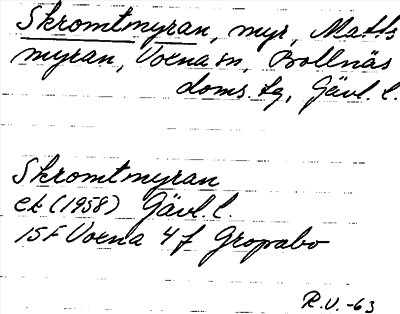 Skromtmyran, myr, Matts
myran, Voxna sn, Bollnäs
doms. tg, Gävl. l.
Skromtmyran
ek (1958) Gävl. l.
15F Voxna 4 f Gropabo
R.U. -63